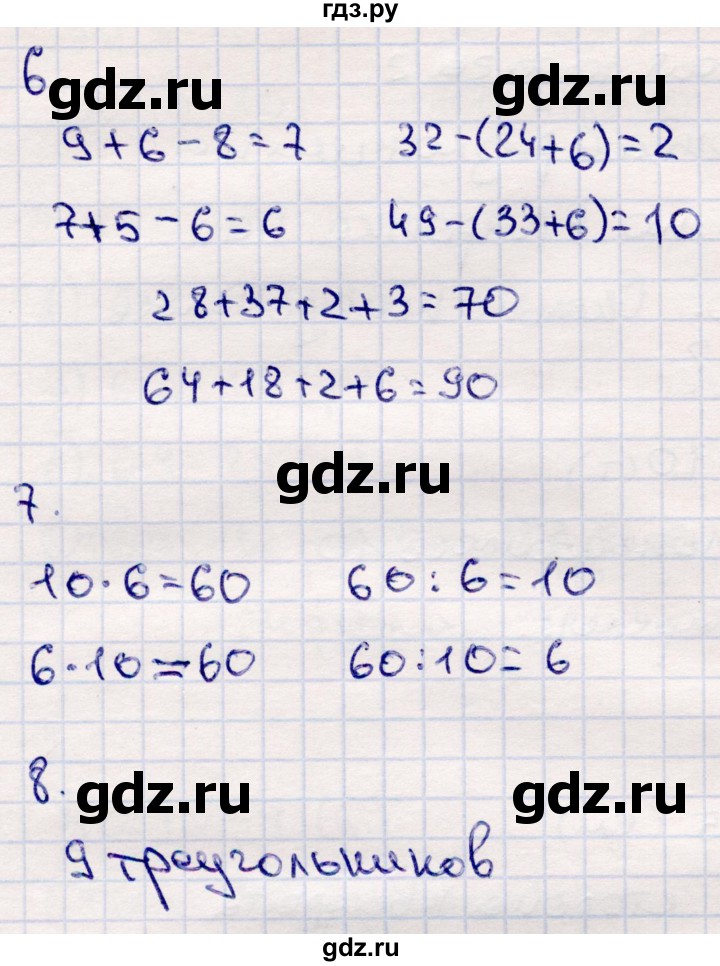 гдз.ру
6
gdz.ru gdz.ru
9+6-8=7 32-(24+6)=2
7+5-6=6 49-(33+6)=10
28+37+2+3=70
64+18+2+6=90
gdz.ru
7.
10·6=60 60:6=10
6·10=60 60:10=6
8.
gdz.ru gdz.ru
9 треугольников
gdz.ru